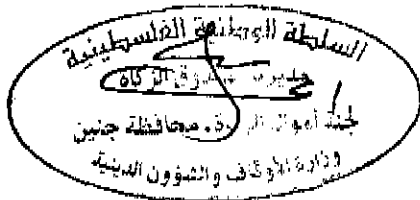 السلطة الوطنية الفلسطينية
صندوق الزكاة
لجنة أموال الزكاة. محافظة جنين
وزارة الأوقاف والشؤون الدينية